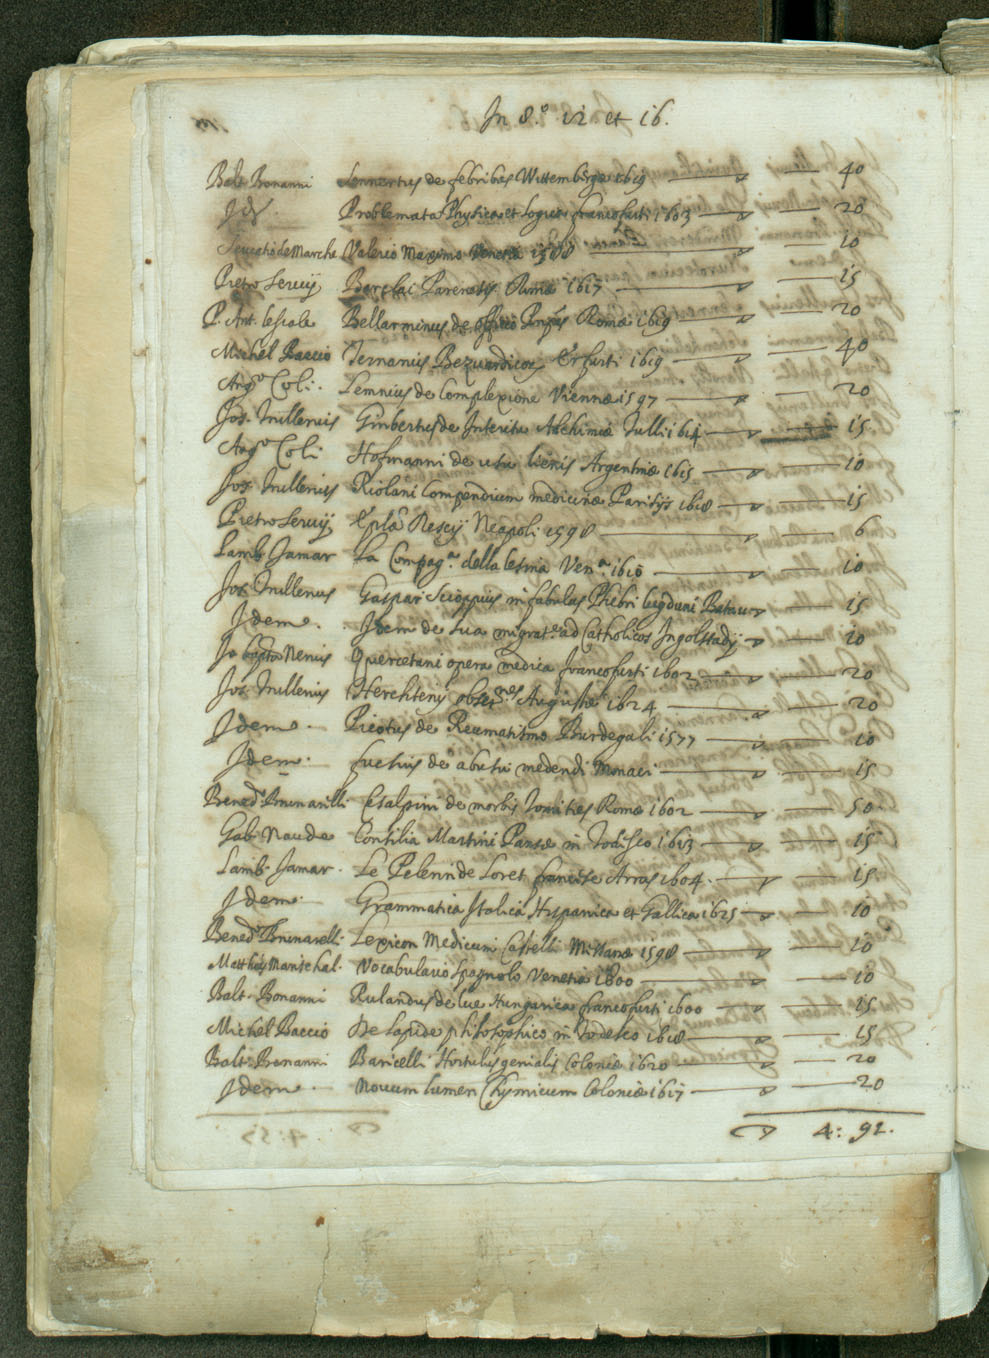 In 8.º 12 et 16.
Balt. Bonanni Sennertus de febribus Wittembergæ 1619 40
Id. Problemata Physica et Logica francofurti 1603 20
de Marche Valerio Maximo Venetia 10
Pietro Servij Barclai Parenesis Romæ 1617 15
P. Ant. Bellarminus de officio Romæ 1619 20
Michel Baccio Bezuardicor Erfurti 1619 40
Ang.º Coli. Lemnius de Complexione Viennæ 1597 20
Jos. Trullerius de Interitu Alchimiæ Tulli 1614 15
Ang.º Coli Hofmanni de usu lienis Argentinæ 1615 10
Jos. Trullerius Riolani Compendium medicinæ Parisijs 1618 15
Pietro Servij Neapoli 1598 6
Lamb. Jamar La Compag.ª della Lesina Ven.ª 1610 10
Jos. Trullerius Gaspar Scioppius in fabulas Phedri lugduni Batavor 15
Idem. Idem de sua migrat.e ad Catholicos Ingolstadij 10
Quercetani opera medica francofurti 1602 20
Jos. Trullerius Augustæ 1624 20
Idem. Picotus de Reumatismo Burdegali 1577 10
Idem. fucsius de abusu medendi Monaci 15
Bened. Brunarelli Cesalpini de morbis Romæ 1602 50
Gab. Naude Consilia Martini Pansæ in Todesco 1613 15
Lamb. Jamar. Le Pelerin de Loret Arras 1604. 15
Idem. Grammatica Italica Hispanica et Gallica 1625 10
Bened. Brunarelli. Lexicon Medicum Castelli 1598 10
Vocabulario Spagnolo Venetia 1600 10
Balt. Bonanni Rulandus de lue Hungarica francofurti 1600 15
Michel Baccio De lapide philosophico in Todesco 1618 15
Balt. Bonanni Baricelli Hortulus genialis Coloniæ 1620 20
Idem. Novum lumen Chymicum Coloniæ 1617 20
4: 92.